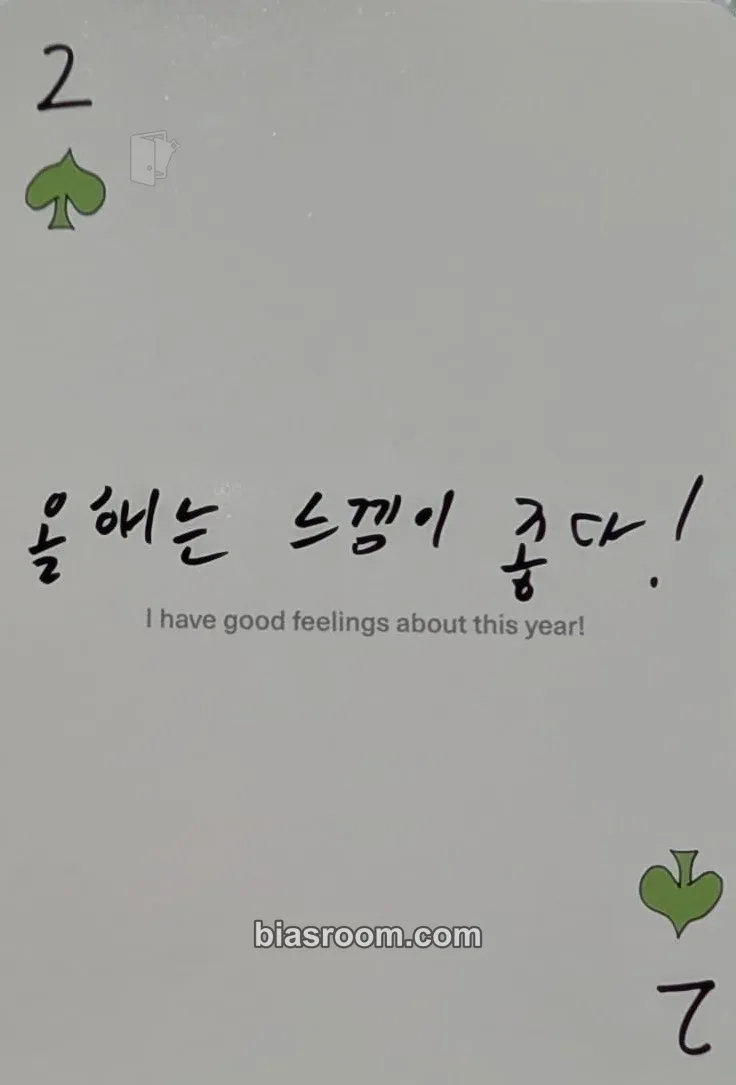 2
올해는 느낌이 좋다!
I have good feelings about this year!
biasroom.com
2